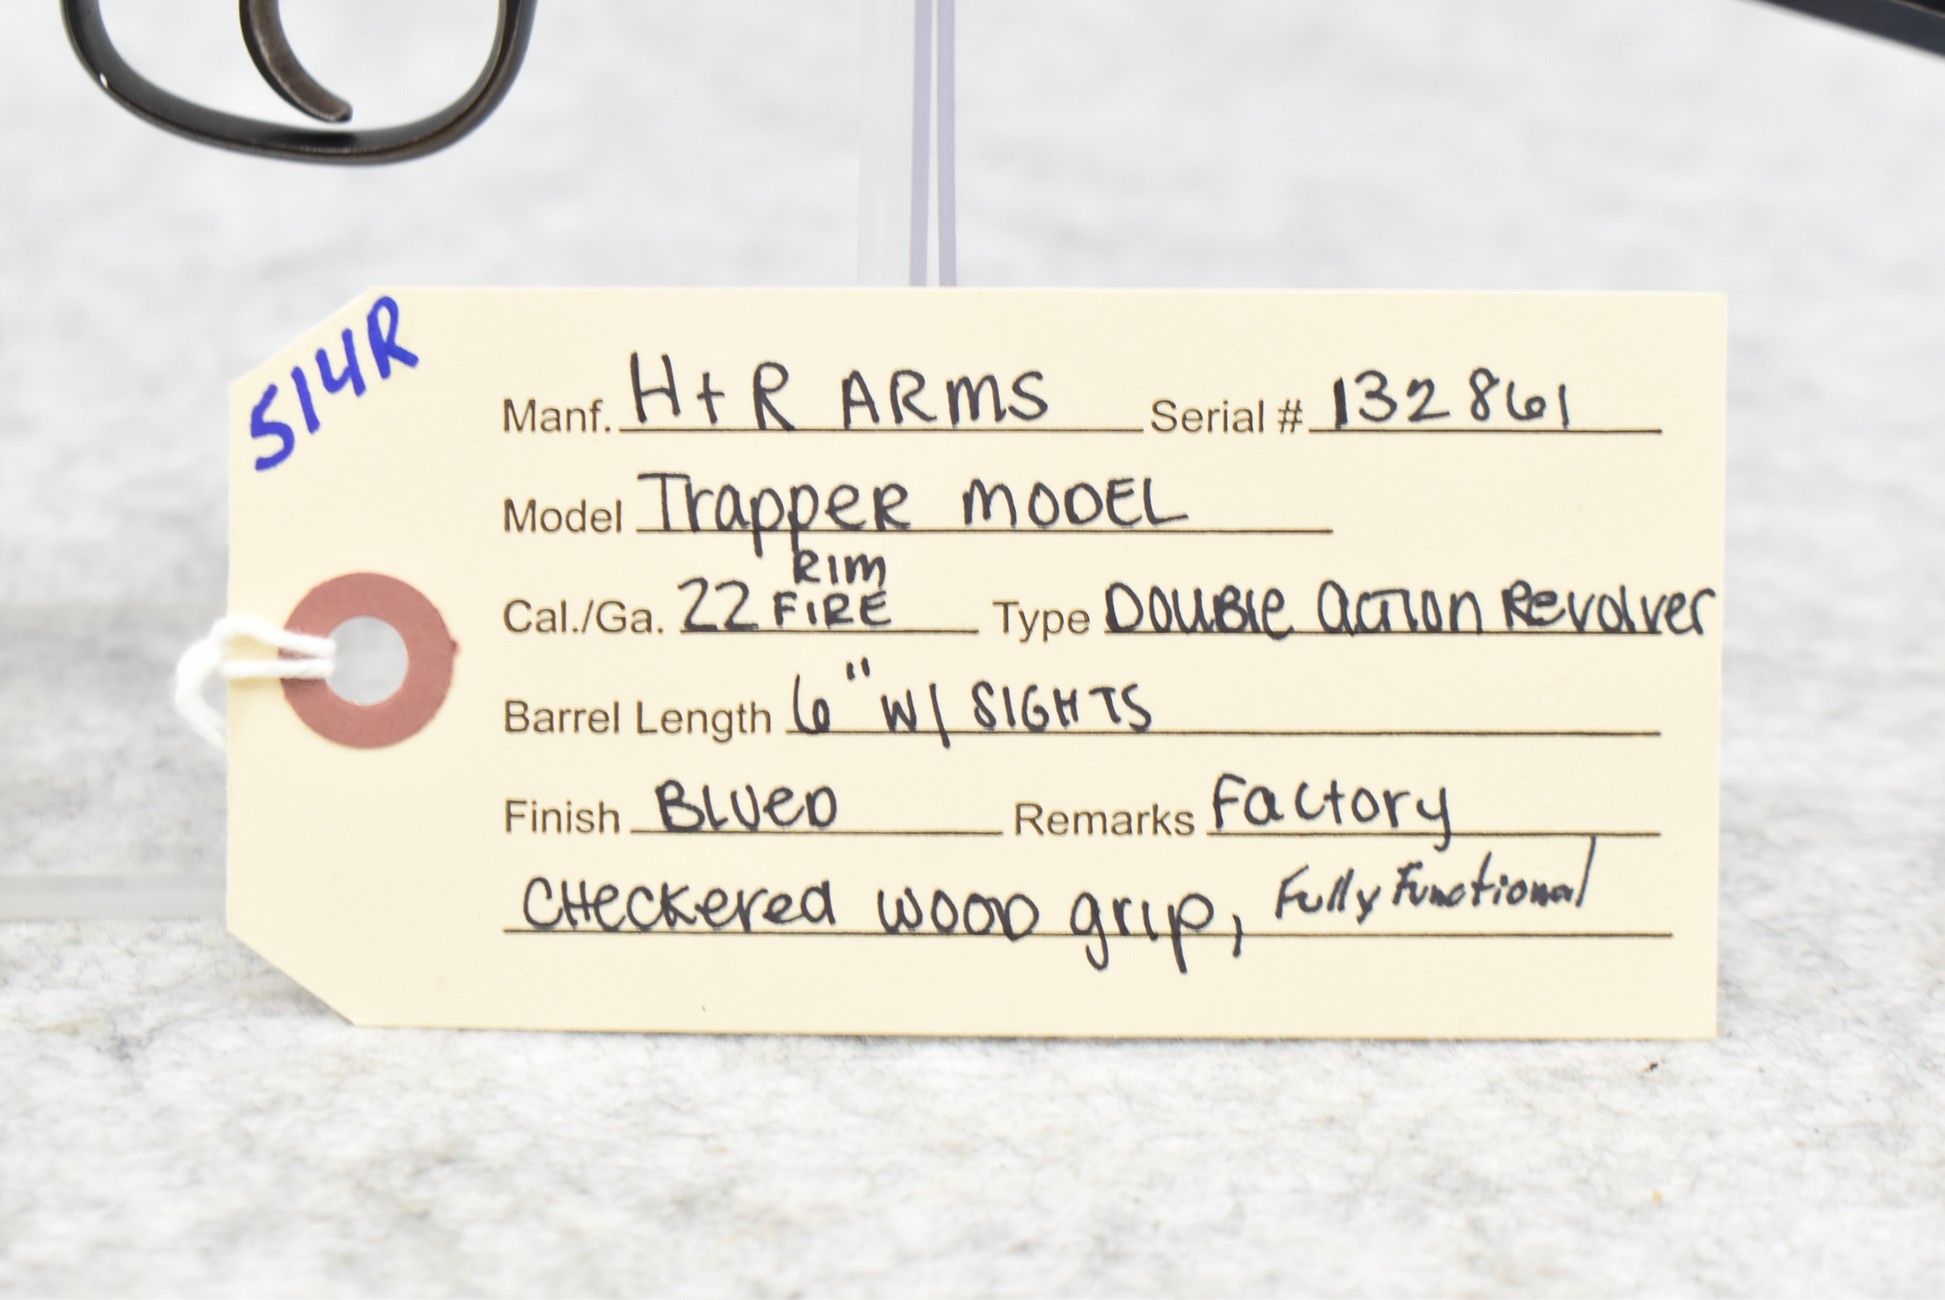 514R
Manf. H+R ARMS Serial # 132861
Model Trapper MODEL
Cal./Ga. 22 RIM FIRE Type Double Action Revolver
Barrel Length 6" W/ SIGHTS
Finish BLUED Remarks Factory
CHeckered wood grip, Fully Functional